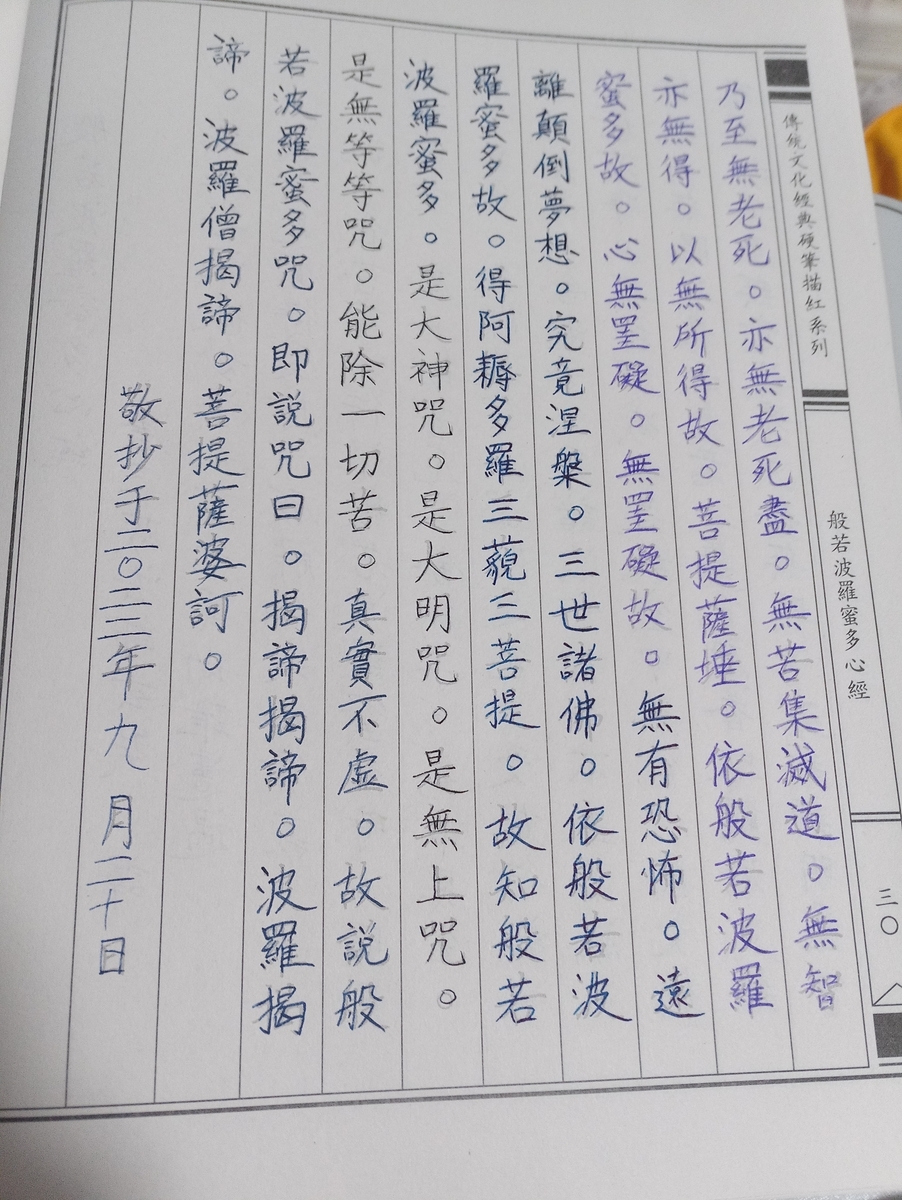 傳統文化經典硬筆描紅系列
般若波羅蜜多心經
三〇
乃至無老死。亦無老死盡。無苦集滅道。無智
亦無得。以無所得故。菩提薩埵。依般若波羅
蜜多故。心無罣礙。無罣礙故。無有恐怖。遠
離顛倒夢想。究竟涅槃。三世諸佛。依般若波
羅蜜多故。得阿耨多羅三藐三菩提。故知般若
波羅蜜多。是大神咒。是大明咒。是無上咒。
是無等等咒。能除一切苦。真實不虛。故說般
若波羅蜜多咒。即說咒曰。揭諦揭諦。波羅揭
諦。波羅僧揭諦。菩提薩婆訶。
敬抄于二〇二三年九月二十日